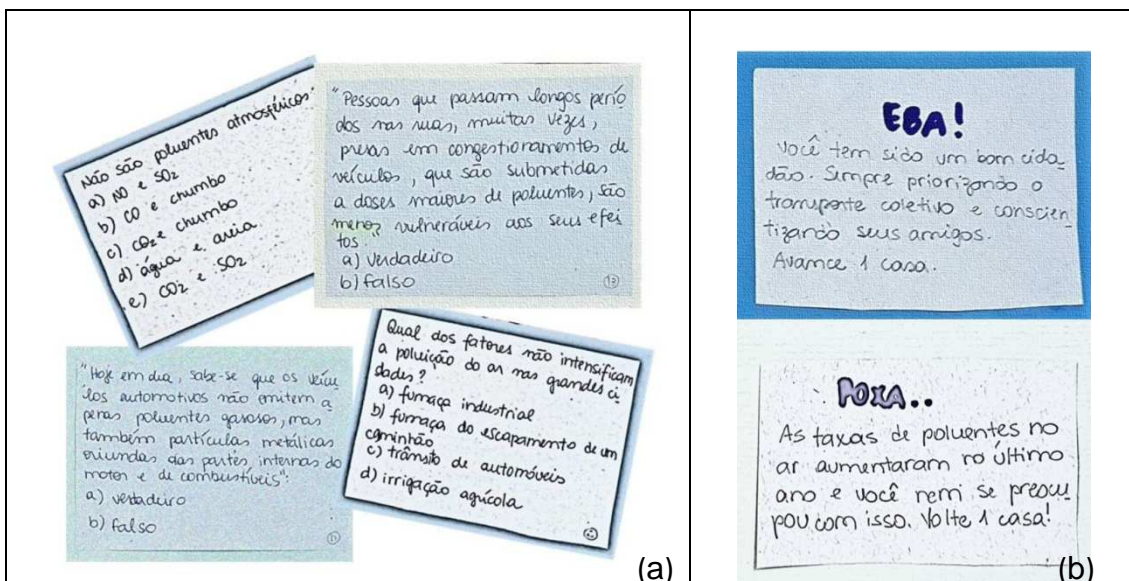 Não são poluentes atmosféricos:
a) NO e SO₂
b) CO e chumbo
c) CO₂ e chumbo
d) água e areia
e) CO₂ e SO₂
"Pessoas que passam longos perío
dos nas ruas, muitas vezes,
presas em congestionamentos de
veículos, que são submetidas
a doses maiores de poluentes, são
menos vulneráveis aos seus efei
tos."
a) Verdadeiro
b) falso
13
"Hoje em dia, sabe-se que os veícu
los automotivos não emitem a
penas poluentes gasosos, mas
também partículas metálicas
oriundas das partes internas do
motor e de combustíveis":
a) verdadeiro
b) falso
Qual dos fatores não intensificam
a poluição do ar nas grandes ci
dades?
a) fumaça industrial
b) fumaça do escapamento de um
caminhão
c) trânsito de automóveis
d) irrigação agrícola
(a)
EBA!
Você tem sido um bom cida_
dão. Sempre priorizando o
transporte coletivo e conscien_
tizando seus amigos.
Avance 1 casa.
POXA..
As taxas de poluentes no
ar aumentaram no último
ano e você nem se preocu_
pou com isso. Volte 1 casa!
(b)